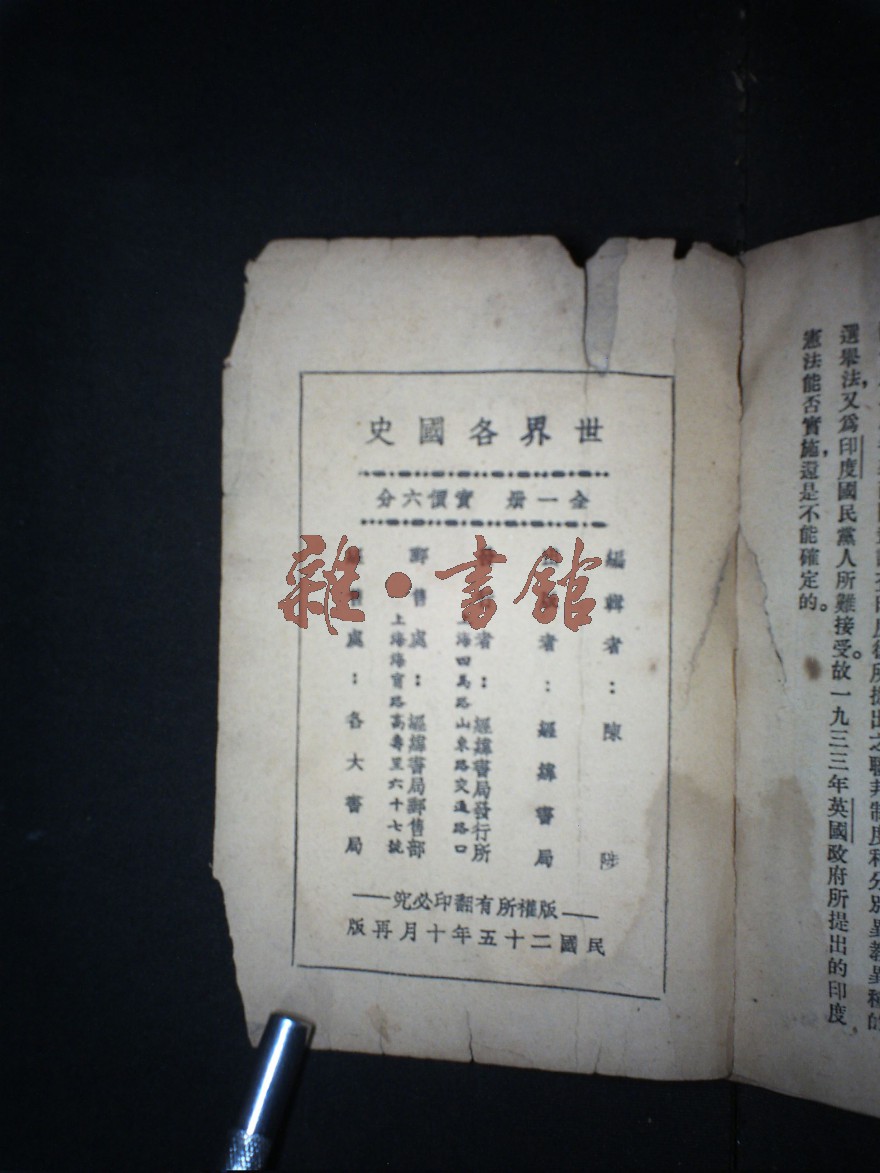 所提出之聯邦制度和分別異教異種的
選舉法,又爲印度國民黨人所難接受。故一九三三年英國政府所提出的印度
憲法能否實施,還是不能確定的。
世界各國史
全一册 實價六分
編輯者:陳 陟
者:經緯書局
者:經緯書局發行所
海四馬路山東路交通路口
郵售處:經緯書局郵售部
上海海寧路高壽里六十七號
處:各大書局
版權所有翻印必究
民國二十五年十月再版
雜·書館